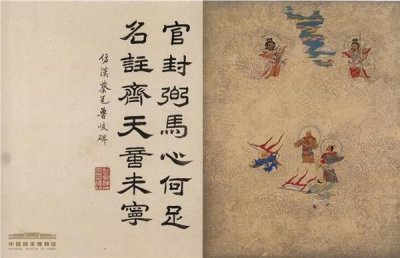 官封弼馬心何足
名註齊天意未寧
仿漢蔡邕魯峻碑
中国国家博物馆